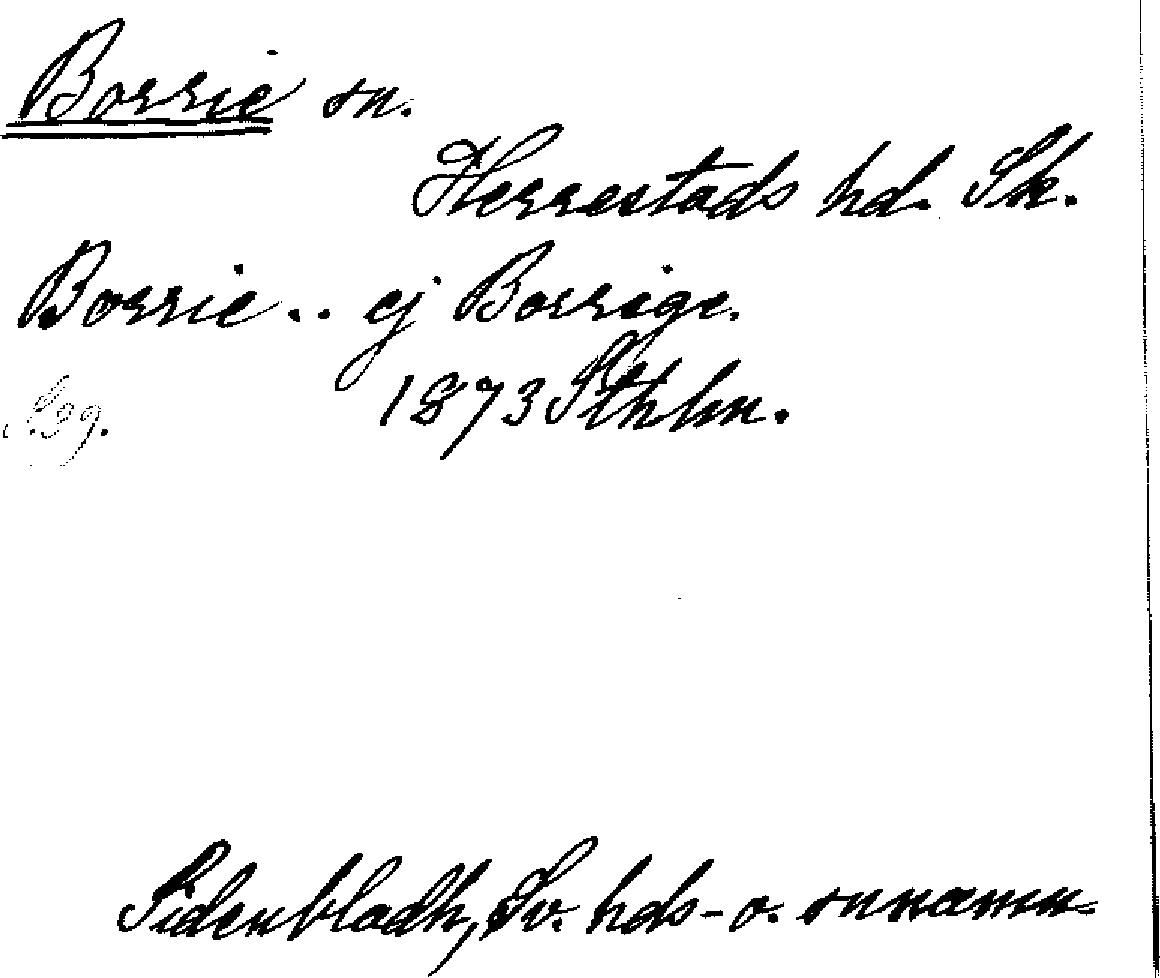 Borrie sn.
Herrestads hd. Sk.
Borrie.. ej Borrige.
1873 Sthlm.
S.39.
Sidenbladh, Sv. hds- o. snnamn.